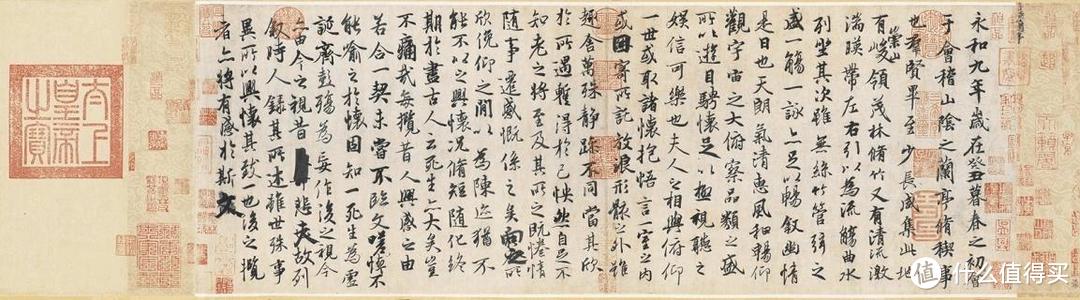 永和九年歲在癸丑暮春之初會
于會稽山陰之蘭亭脩稧事
也群賢畢至少長咸集此地
有崇山峻領茂林脩竹又有清流激
湍暎帶左右引以為流觴曲水
列坐其次雖無絲竹管弦之
盛一觴一詠亦足以暢敘幽情
是日也天朗氣清惠風和暢仰
觀宇宙之大俯察品類之盛
所以遊目騁懷足以極視聽之
娛信可樂也夫人之相與俯仰
一世或取諸懷抱悟言一室之內
或因寄所託放浪形骸之外雖
趣舍萬殊靜躁不同當其欣
於所遇蹔得於己怏然自足不
知老之將至及其所之既惓情
隨事遷感慨係之矣向之所
欣俛仰之閒以為陳迹猶不
能不以之興懷況脩短隨化終
期於盡古人云死生亦大矣豈
不痛哉每攬昔人興感之由
若合一契未嘗不臨文嗟悼不
能喻之於懷固知一死生為虛
誕齊彭殤為妄作後之視今
亦由今之視昔悲夫故列
敘時人錄其所述雖世殊事
異所以興懷其致一也後之攬
者亦將有感於斯文
太上
皇帝
之寶
值 什么值得买